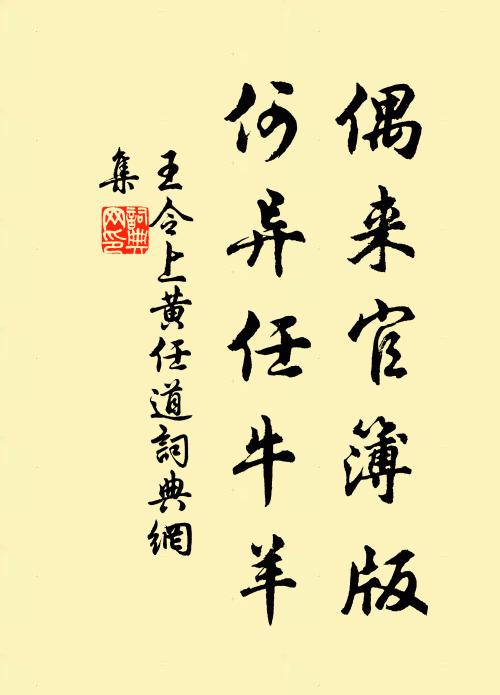 偶来官簿版
何异任牛羊
王令上黄任道詞典網
集
詞典
网印